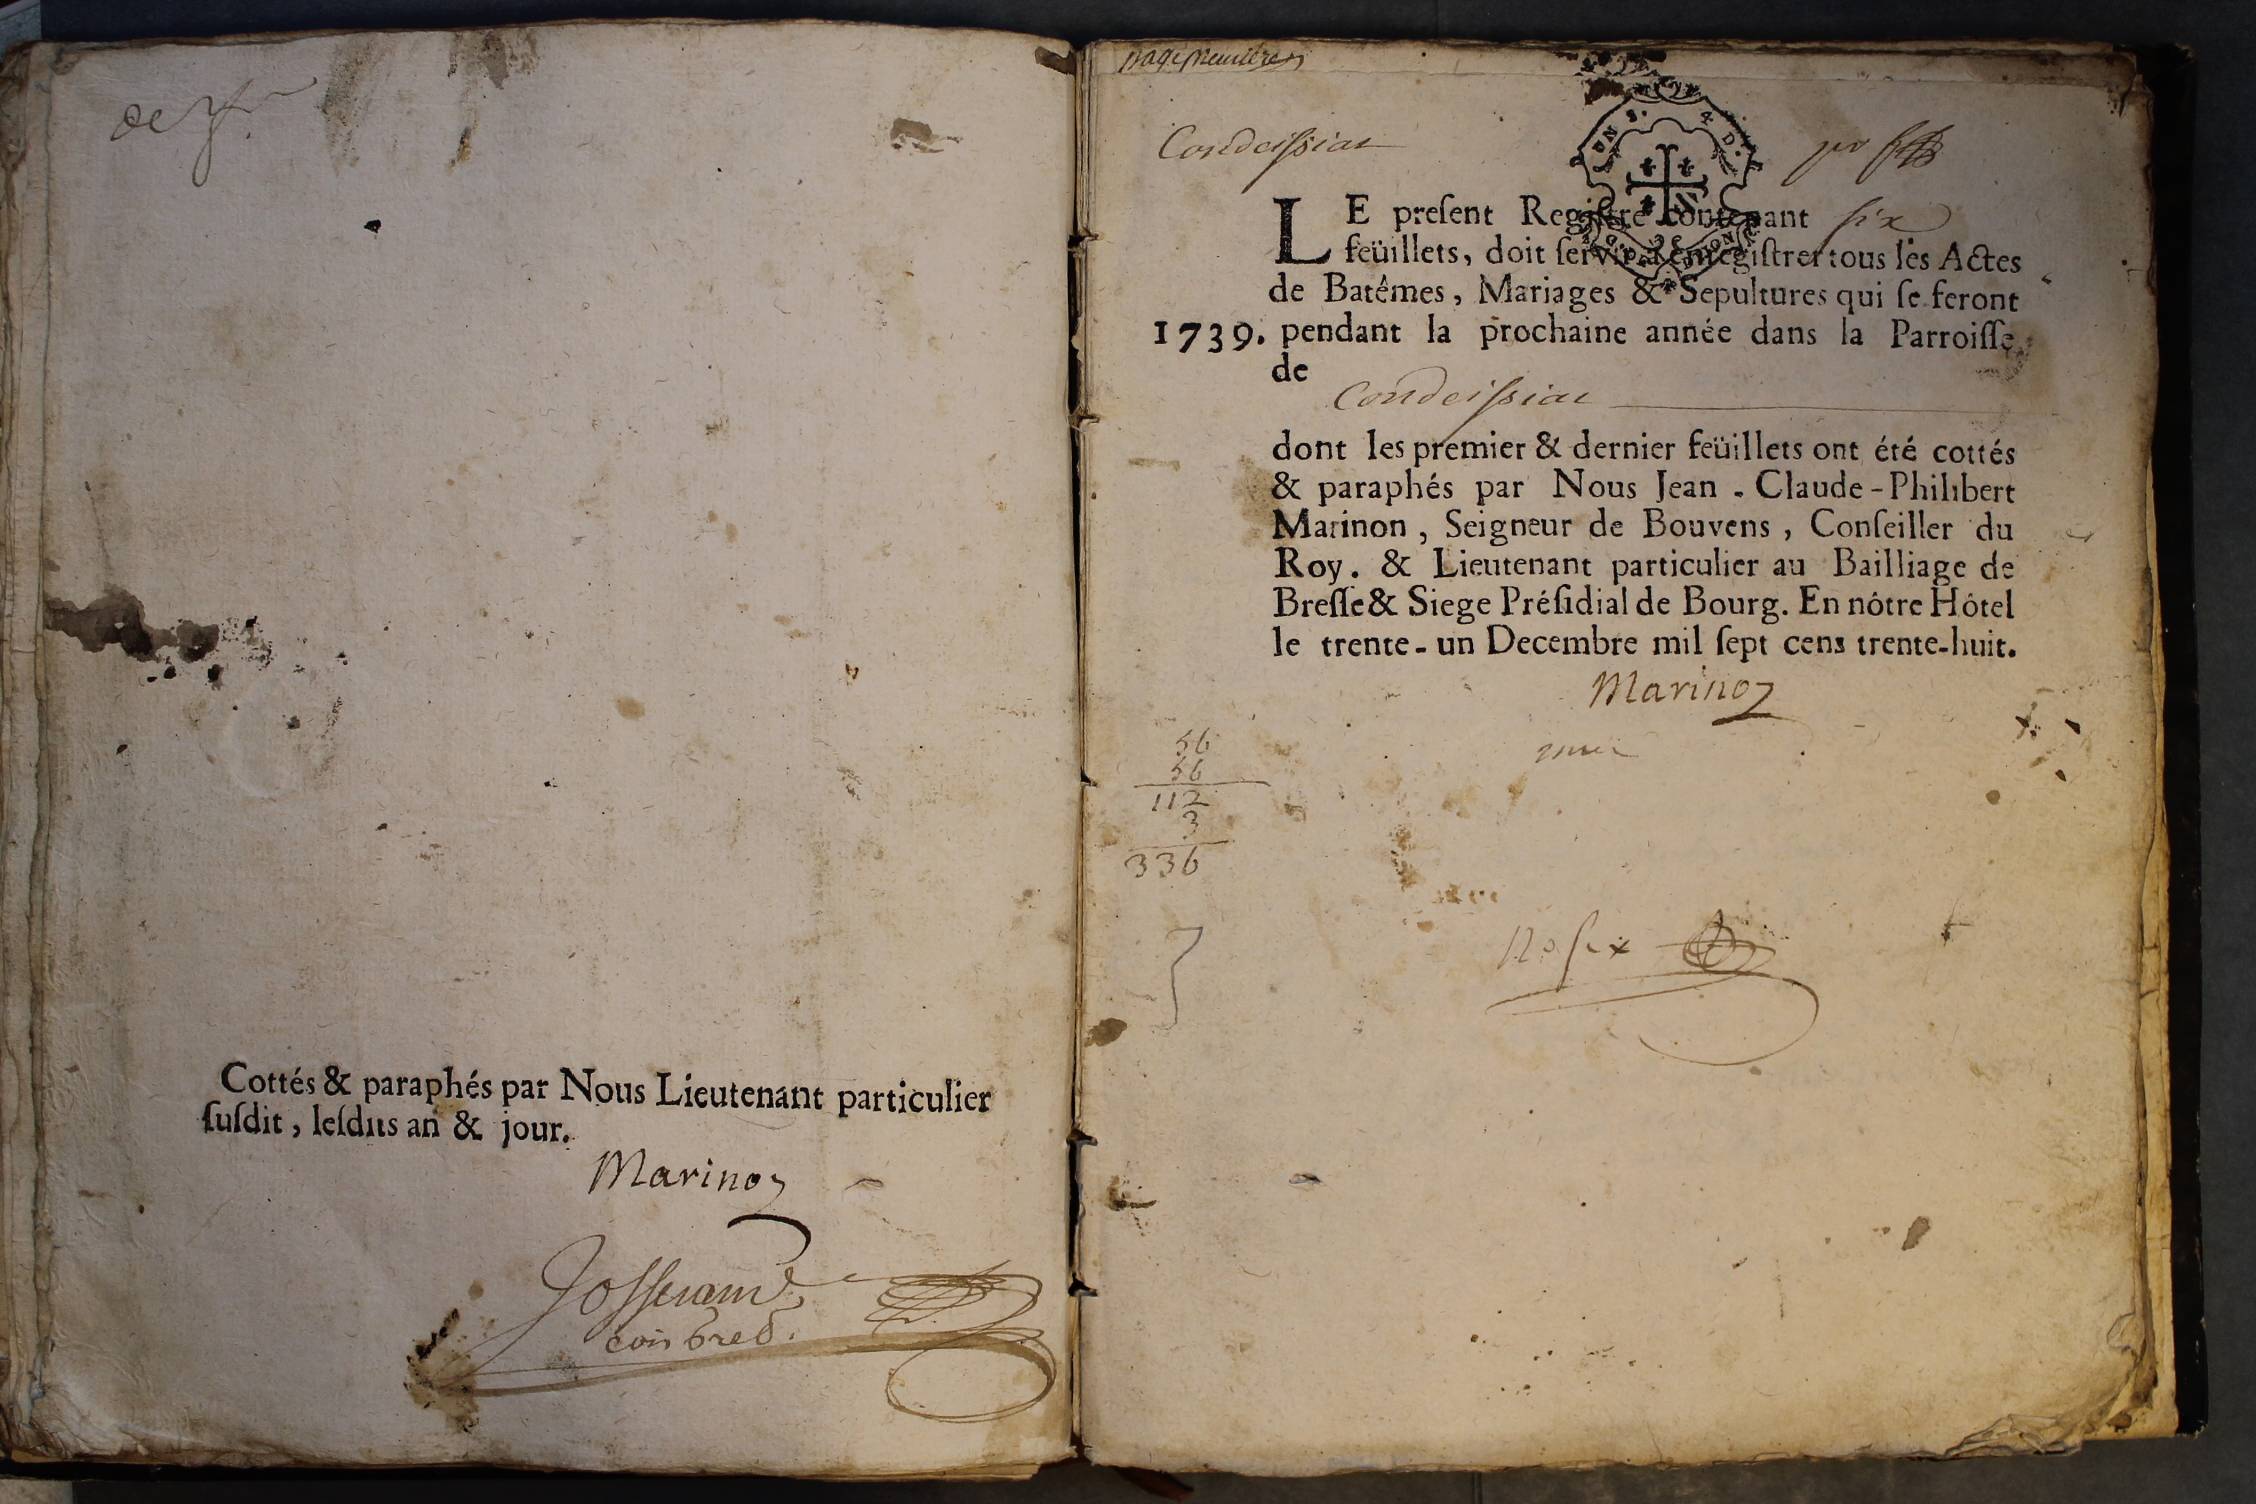 Cottés & paraphés par Nous Lieutenant particulier
ſuſdit, leſdits an & jour.
Marinon
Josserand
page premiere
Condeissiat
LE preſent Regiſtre contenant six
feüillets, doit ſervir à enregiſtrer tous les Actes
de Batêmes, Mariages & Sepultures qui ſe feront
1739. pendant la prochaine année dans la Parroiſſe
de
Condeissiat
dont les premier & dernier feüillets ont été cottés
& paraphés par Nous Jean-Claude-Philibert
Marinon, Seigneur de Bouvens, Conſeiller du
Roy. & Lieutenant particulier au Bailliage de
Breſſe & Siege Préſidial de Bourg. En nôtre Hôtel
le trente-un Decembre mil ſept cens trente-huit.
Marinon
56
56
112
3
336
No six